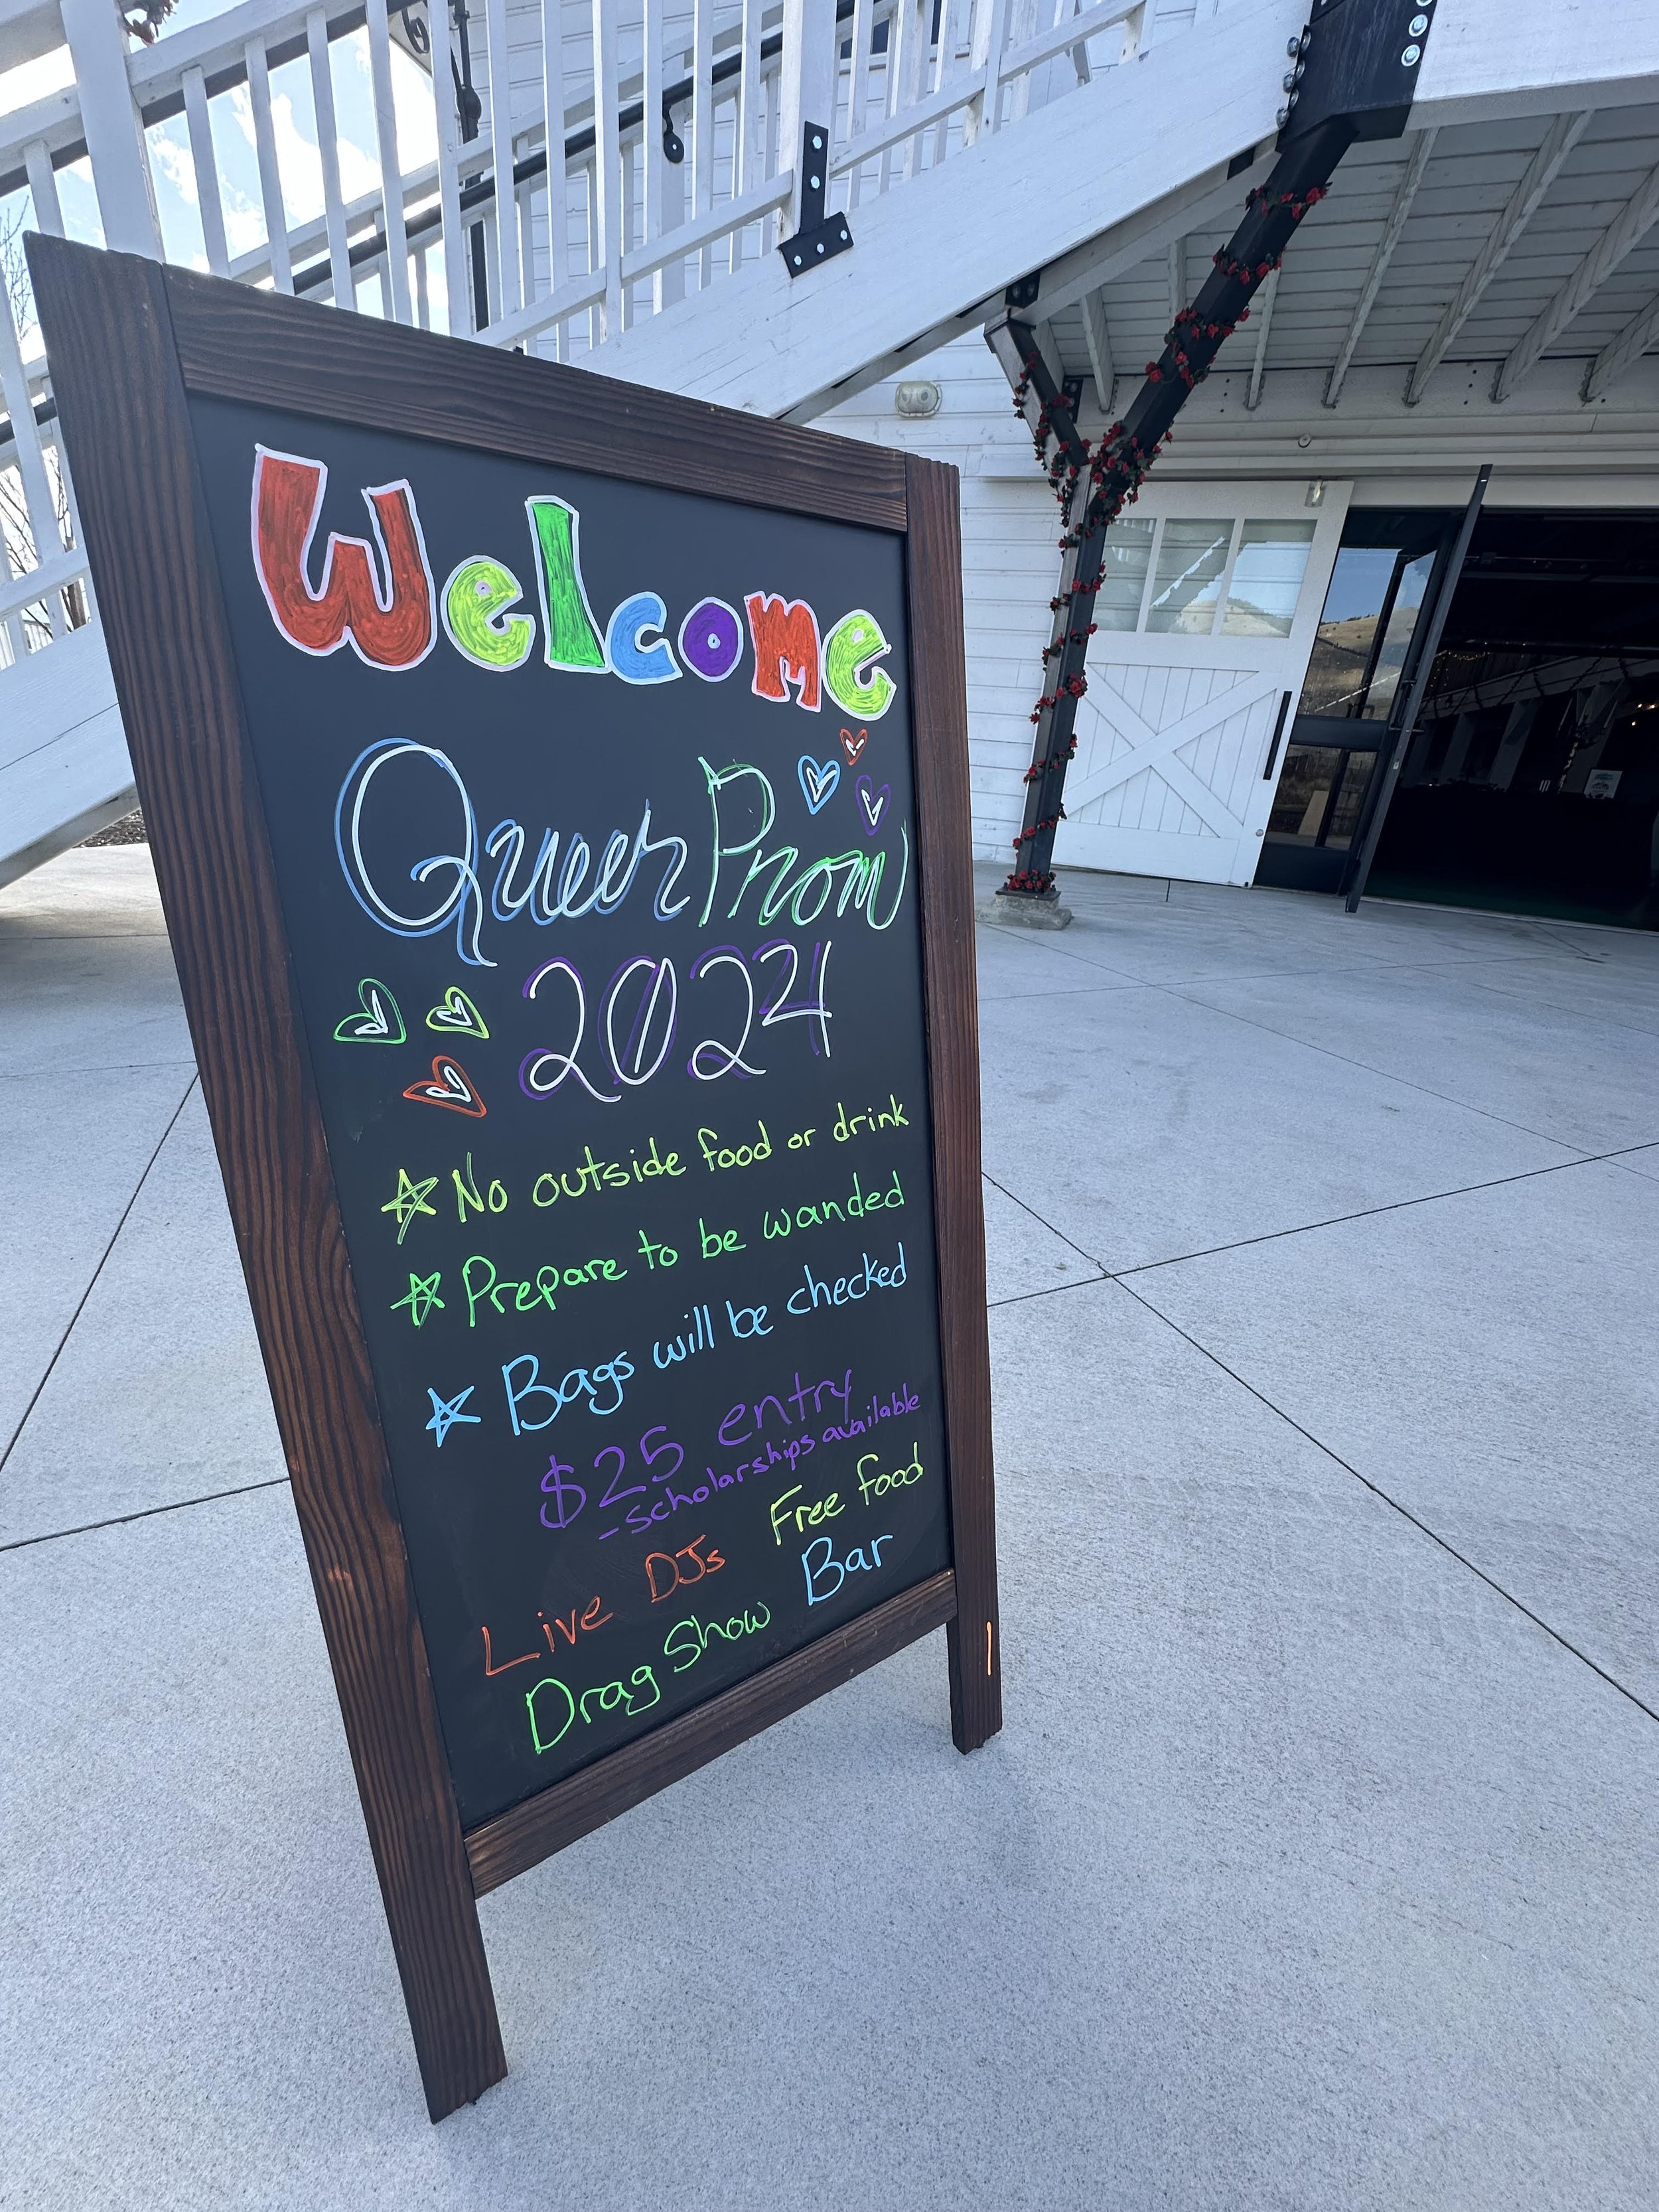 Welcome
Queer Prom
2024
No outside food or drink
Prepare to be wanded
Bags will be checked
$25 entry
-scholarships available
Live DJs Free food
Drag Show Bar